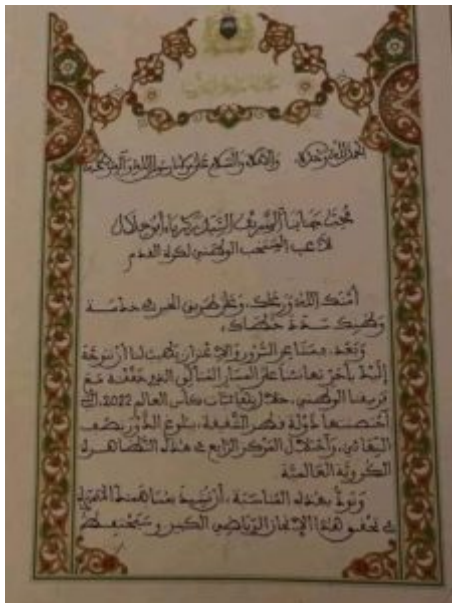 الحمد لله وحده والصلاة والسلام على مولانا رسول الله وآله وصحبه
محب جنابنا الشريف السيد زكرياء أبو خلال
لاعب المنتخب الوطني لكرة القدم
أمنك الله ورعاك، وعلى طريق الخير في خدمة
وطنك سدد خطاك،
وبعد، فمتنا بحر السرور والاعتزاز يطيب لنا أن نتوجه
إليك بأحر تهانئنا على المسار المثالي الذي حققته مع
فريقنا الوطني، خلال نهائيات كأس العالم 2022، التي
احتضنتها دولة قطر الشقيقة، ببلوغ الدور نصف
النهائي، واحتلال المركز الرابع في هذه التظاهرة
الكروية العالمية
ونود بهذه المناسبة، أن نشيد بمساهمتك
في تحقيق هذا الإنجاز الرياضي الكبير